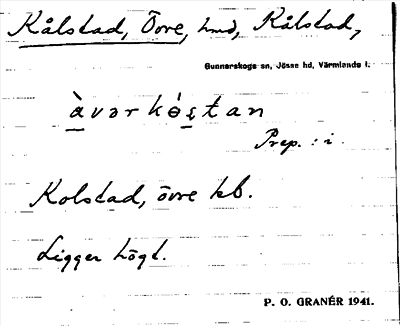 Kålstad, Övre, hmd, Kålstad,
Gunnarskogs sn, Jösse hd, Värmlands l.
Prep. : i.
Kolstad, övre kb.
Ligger högt.
P. O. GRANÉR 1941.